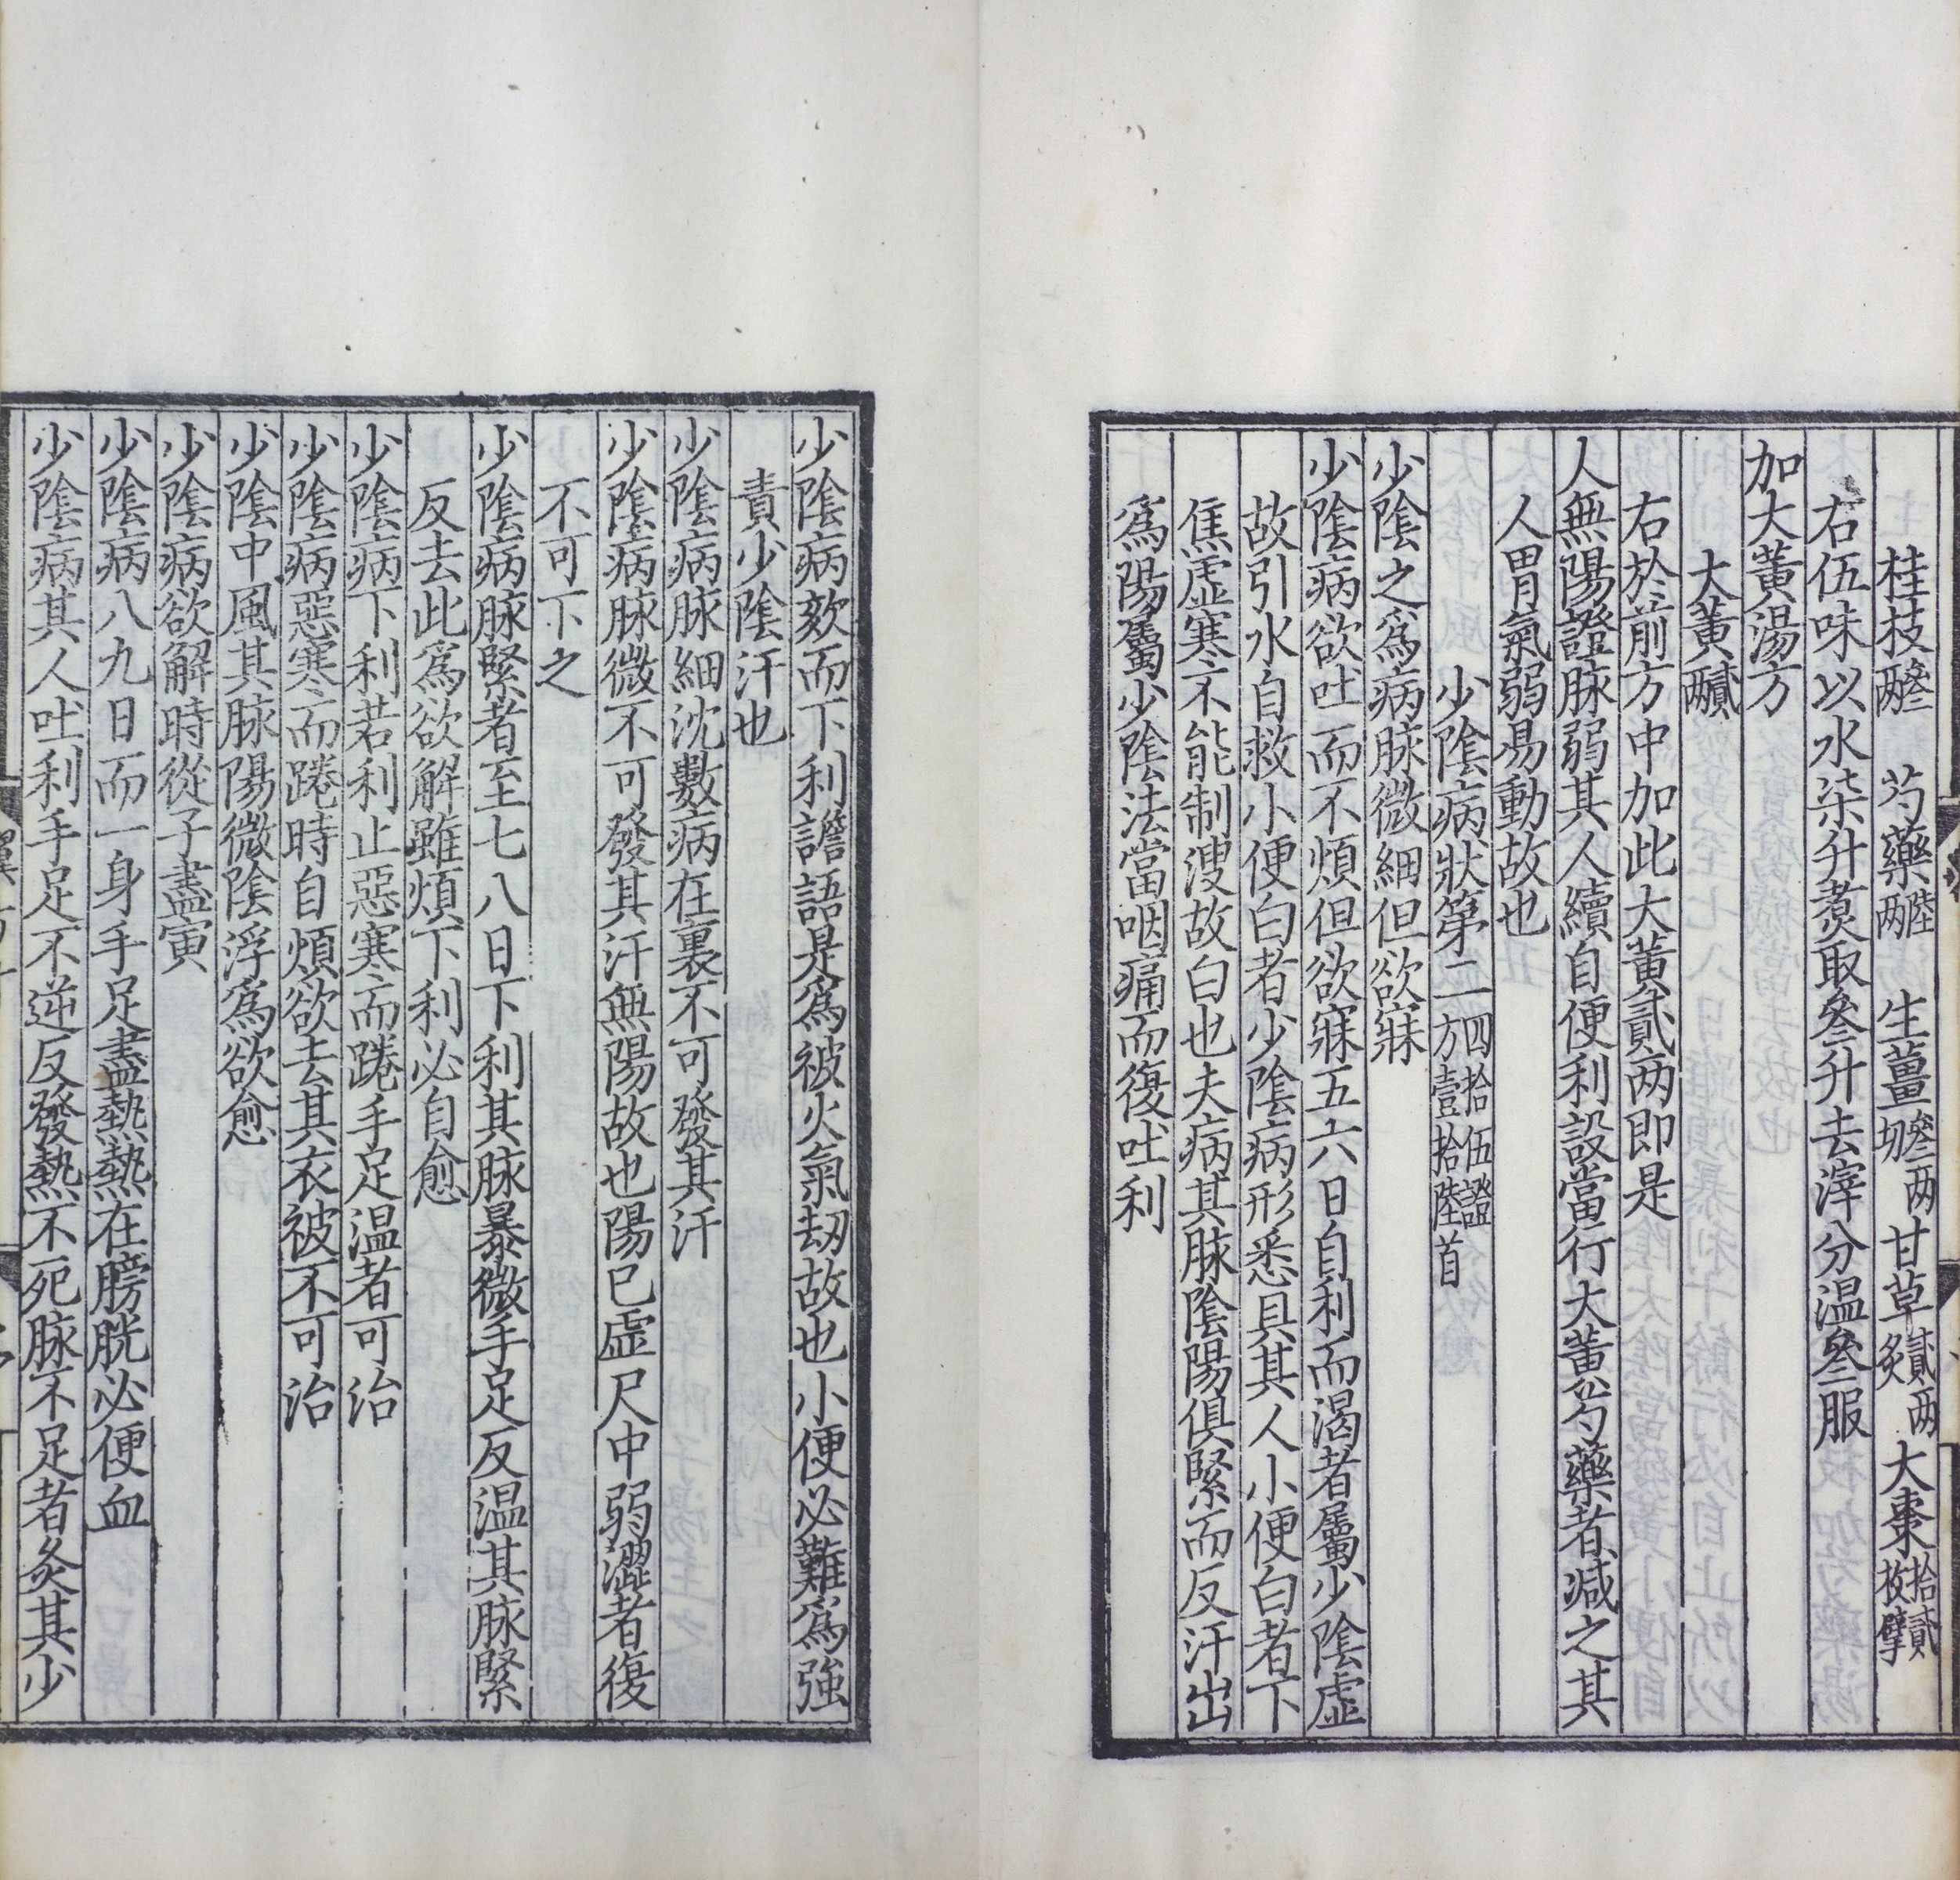 桂枝叁兩 芍藥陸兩 生薑叁兩切 甘草貳兩炙 大棗拾貳枚擘
右伍味以水柒升煑取叁升去滓分温叁服
加大黄湯方
大黄貳兩
右於前方中加此大黄貳两即是
人無陽證脉弱其人續自便利設當行大黄芍藥者減之其
人胃氣弱易動故也
少隂病狀第二四拾伍證方壹拾陸首
少隂之爲病脉微細但欲寐
少隂病欲吐而不煩但欲寐五六日自利而渴者屬少隂虛
故引水自救小便白者少隂病形悉具其人小便白者下
焦虛寒不能制溲故白也夫病其脉隂陽俱緊而反汗出
爲陽屬少隂法當咽痛而復吐利
少隂病欬而下利譫語是爲被火氣刼故也小便必難爲強
責少隂汗也
少隂病脉細沈數病在裏不可發其汗
少隂病脉微不可發其汗無陽故也陽已虛尺中弱澀者復
不可下之
少隂病脉緊者至七八日下利其脉暴微手足反温其脉緊
反去此爲欲解雖煩下利必自愈
少隂病下利若利止惡寒而踡手足温者可治
少隂病惡寒而踡時自煩欲去其衣被不可治
少隂中風其脉陽微隂浮爲欲愈
少隂病欲解時從子盡寅
少隂病八九日而一身手足盡熱熱在膀胱必便血
少隂病其人吐利手足不逆反發熱不死脉不足者灸其少